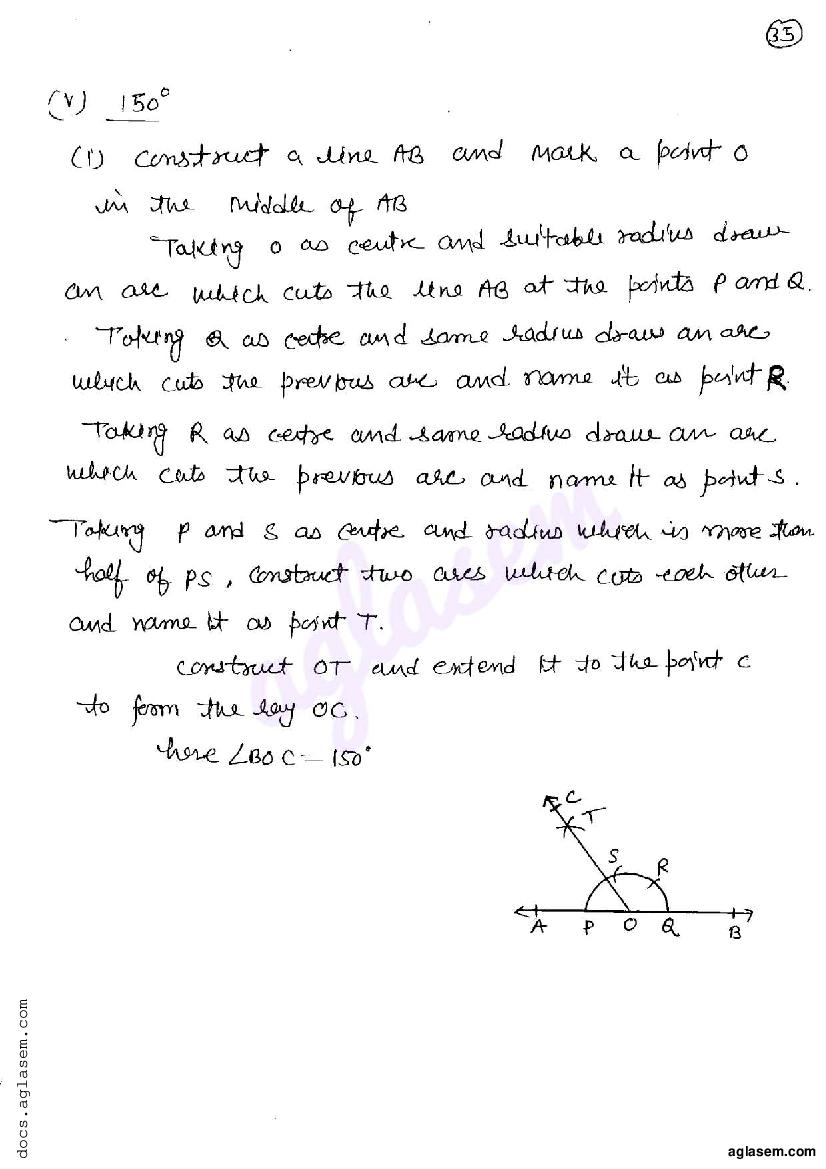 35
(v) 150°
(1) Construct a line AB and Mark a point O
in the middle of AB
Taking O as centre and suitable radius draw
an arc which cuts the line AB at the points P and Q.
Taking Q as cetre and same radius draw an arc
which cuts the previous arc and name it as point R.
Taking R as cetre and same radius draw an arc
which cuts the previous arc and name it as point S.
Taking P and S as centre and radius which is more than
half of PS, construct two arcs which cuts each other
and name it as point T.
Construct OT and extend it to the point C
to form the ray OC.
here ∠BOC = 150°
C
T
S
R
A P O Q B
aglasem
docs.aglasem.com
aglasem.com